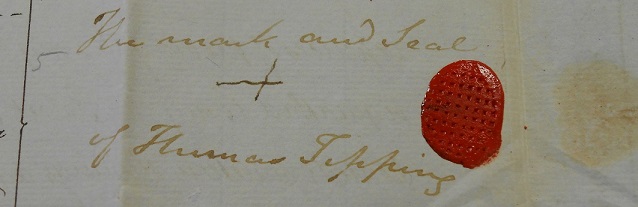 The mark and Seal
+
of Thumas Tipping